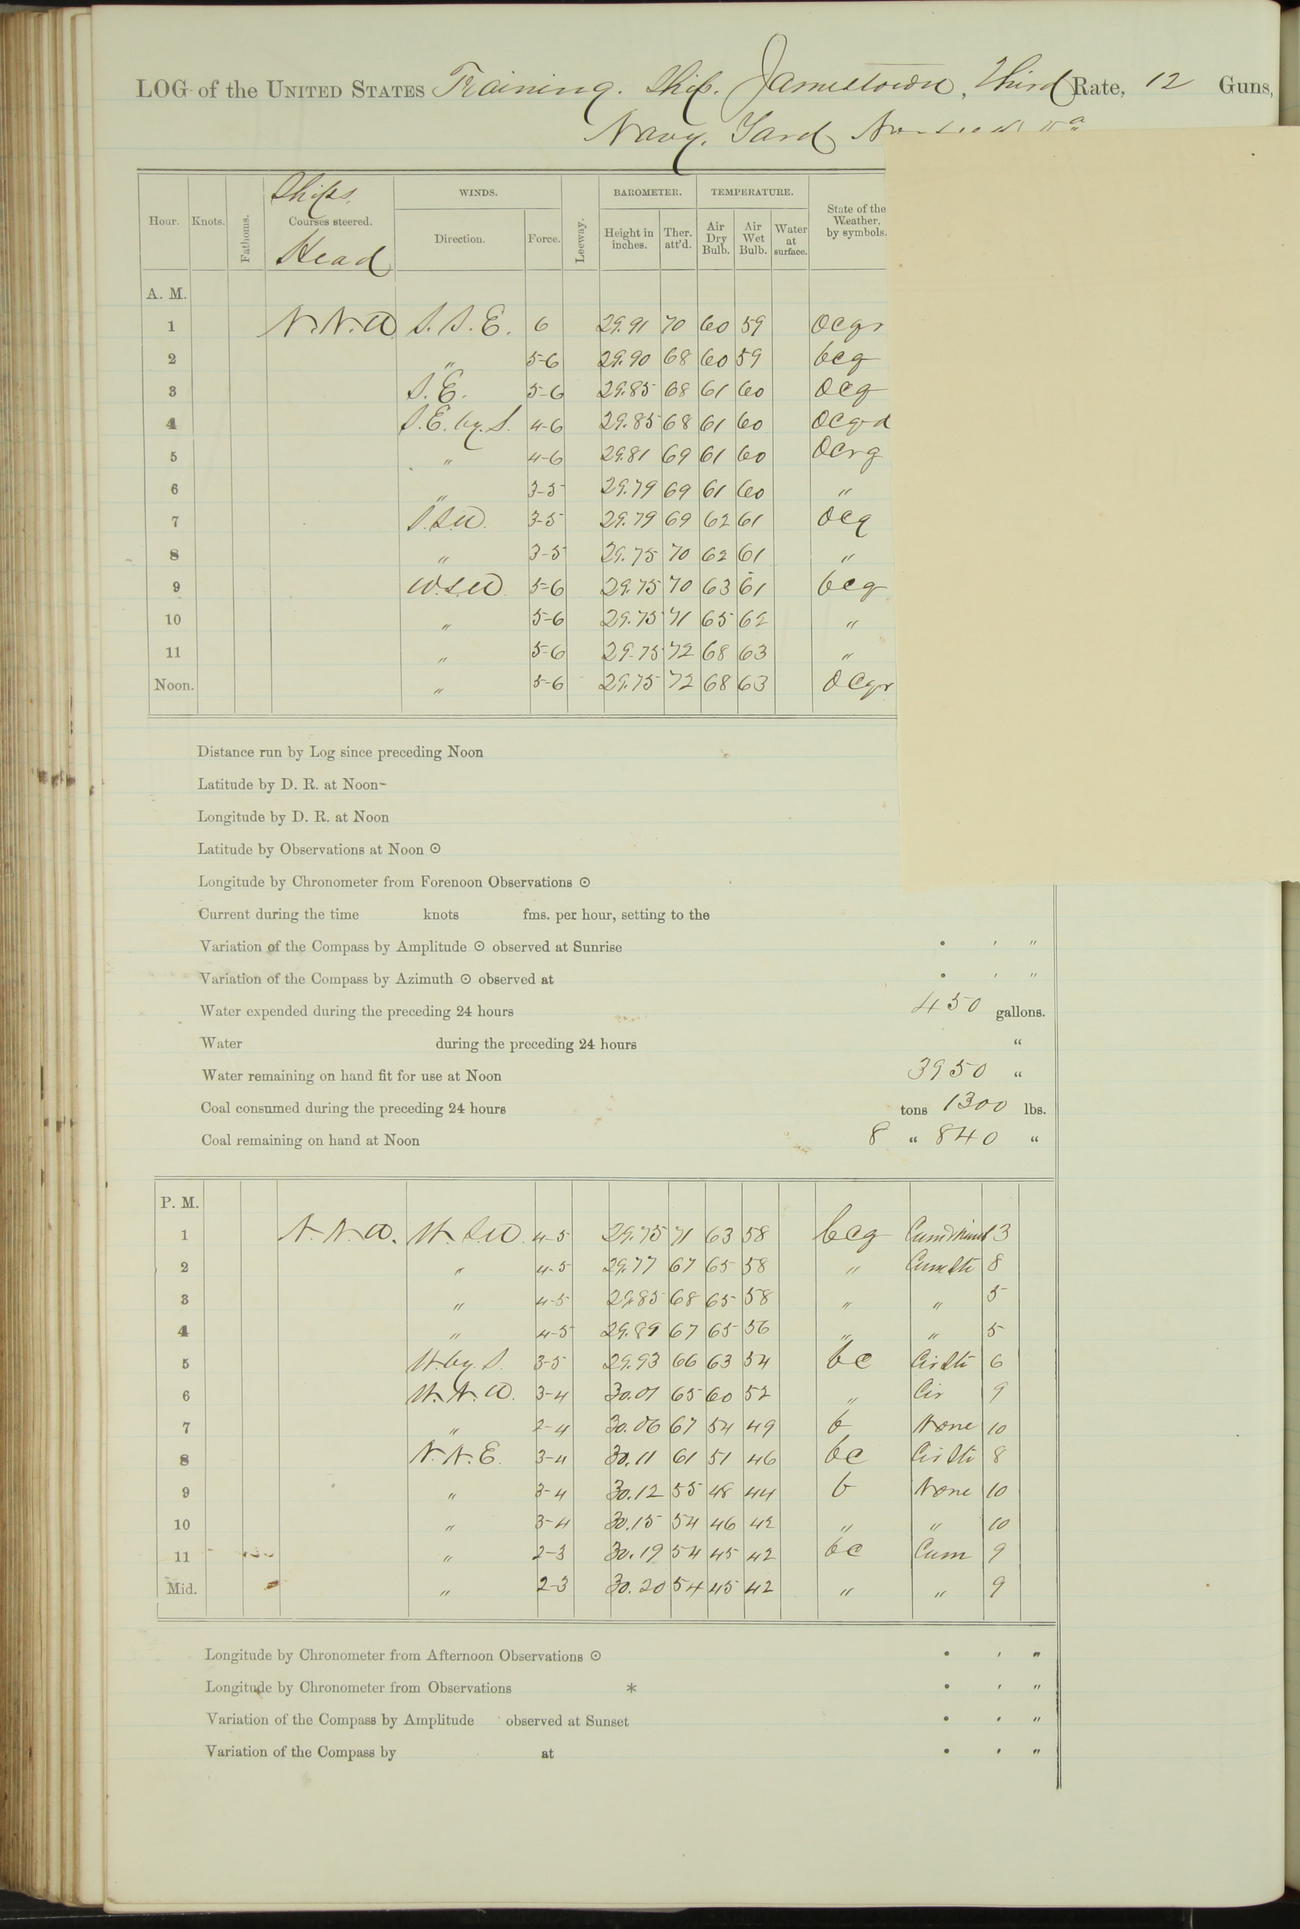 LOG of the UNITED STATES Training Ship Jamestown, Third Rate, 12 Guns,
Navy Yard
Hour. Knots. Fathoms. Ships Courses steered. Head WINDS. Direction. Force. Leeway. BAROMETER. Height in inches. Ther. att'd. TEMPERATURE. Air Dry Bulb. Air Wet Bulb. Water at surface. State of the Weather, by symbols.
A. M.
1 N.N.W S.S.E. 6 29.91 70 60 59 ocgr
2 " 5-6 29.90 68 60 59 bcg
3 S.E. 5-6 29.85 68 61 60 ocg
4 S.E. by S. 4-6 29.85 68 61 60 ocgd
5 " 4-6 29.81 69 61 60 ocrg
6 " 3-5 29.79 69 61 60 "
7 S.S.W. 3-5 29.79 69 62 61 ocg
8 " 3-5 29.75 70 62 61 "
9 W.S.W 5-6 29.75 70 63 61 bcg
10 " 5-6 29.75 71 65 62 "
11 " 5-6 29.75 72 68 63 "
Noon. " 5-6 29.75 72 68 63 ocgr
Distance run by Log since preceding Noon
Latitude by D. R. at Noon
Longitude by D. R. at Noon
Latitude by Observations at Noon ⊙
Longitude by Chronometer from Forenoon Observations ⊙
Current during the time knots fms. per hour, setting to the
Variation of the Compass by Amplitude ⊙ observed at Sunrise ° ' "
Variation of the Compass by Azimuth ⊙ observed at ° ' "
Water expended during the preceding 24 hours 450 gallons.
Water during the preceding 24 hours "
Water remaining on hand fit for use at Noon 3950 "
Coal consumed during the preceding 24 hours tons 1300 lbs.
Coal remaining on hand at Noon 8 " 840 "
P. M.
1 N.N.W. W.S.W. 4-5 29.75 71 63 58 bcg 3
2 " 4-5 29.77 67 65 58 " Cum Sti 8
3 " 4-5 29.85 68 65 58 " " 5
4 " 4-5 29.89 67 65 56 " " 5
5 W. by S. 3-5 29.93 66 63 54 bc Cir Sti 6
6 W.N.W. 3-4 30.01 65 60 52 " Cir 9
7 " 2-4 30.06 67 54 49 b None 10
8 N.N.E. 3-4 30.11 61 51 46 bc Cir Sti 8
9 " 3-4 30.12 55 48 44 b None 10
10 " 3-4 30.15 54 46 42 " " 10
11 " 2-3 30.19 54 45 42 bc Cum 9
Mid. " 2-3 30.20 54 45 42 " " 9
Longitude by Chronometer from Afternoon Observations ⊙ ° ' "
Longitude by Chronometer from Observations * ° ' "
Variation of the Compass by Amplitude observed at Sunset ° ' "
Variation of the Compass by at ° ' "